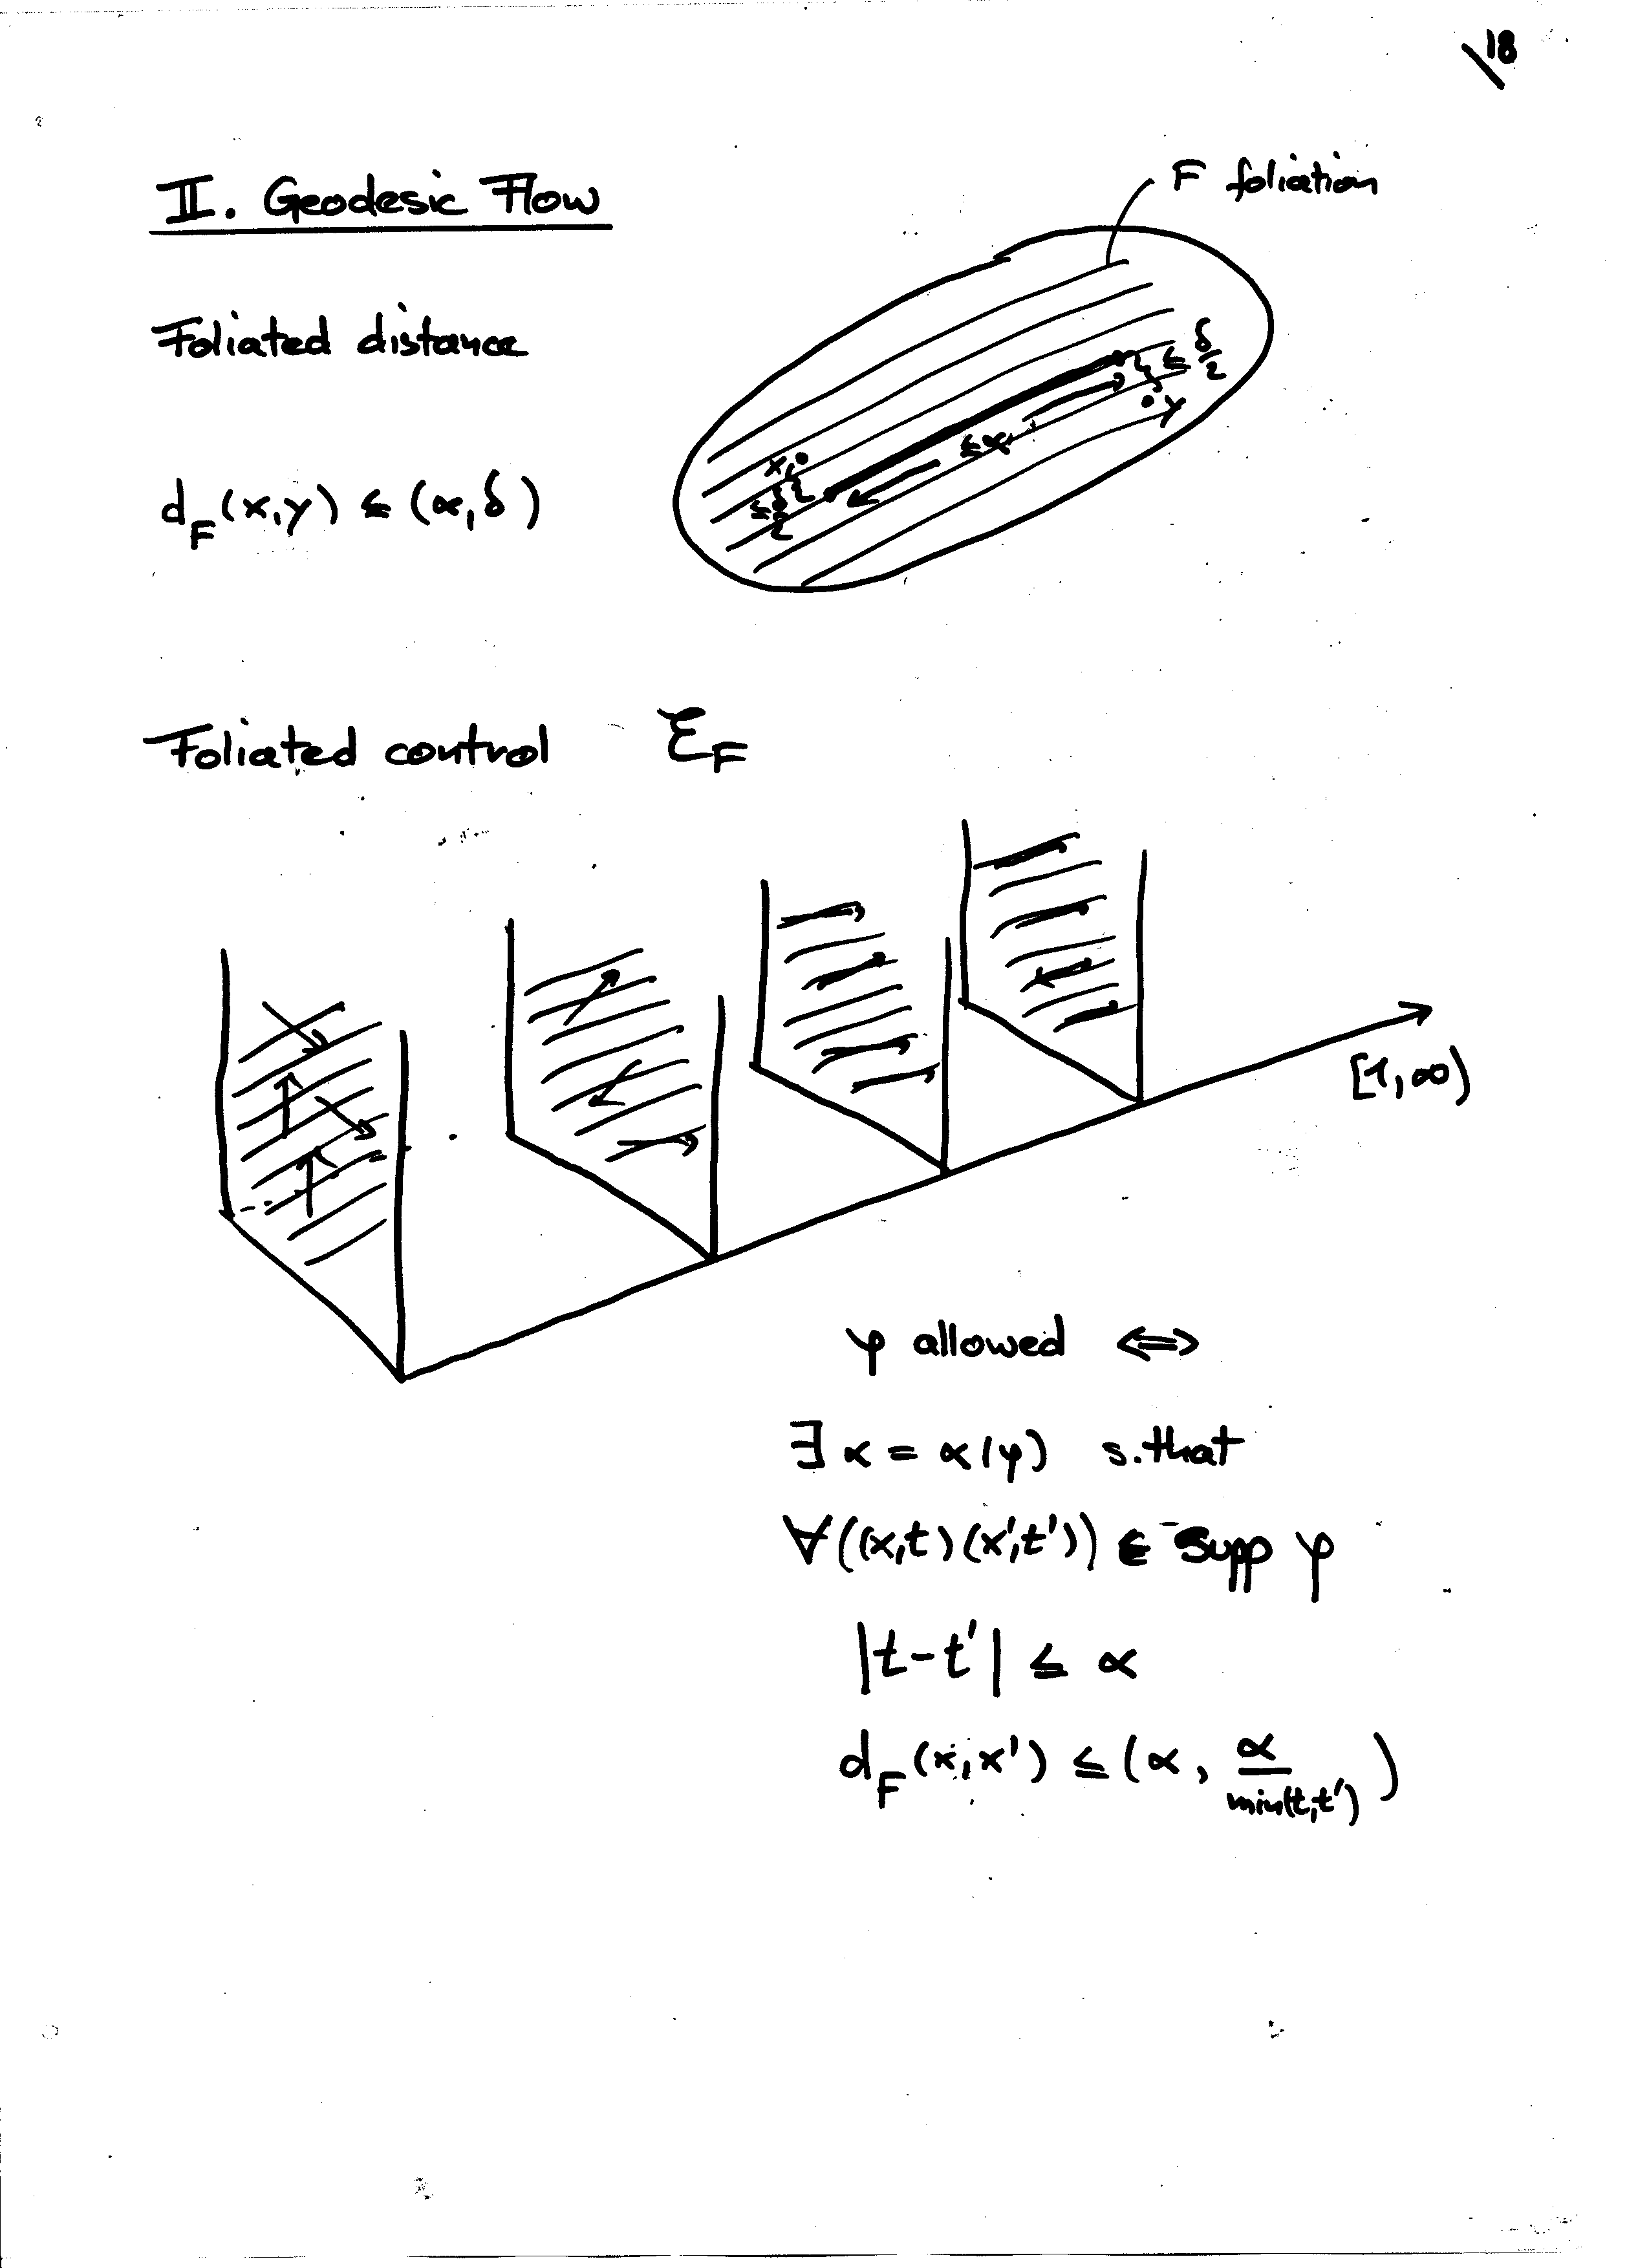 18
II. Geodesic Flow
F foliation
Foliated distance
≤ δ/2
y
≤ α
x
≤ δ/2
d_F(x,y) ≤ (α,δ)
Foliated control ℰ_F
[1,∞)
φ allowed ⟺
∃ α = α(φ) s.that
∀((x,t)(x',t')) ∈ supp φ
|t-t'| ≤ α
d_F(x,x') ≤ (α, α/min(t,t'))